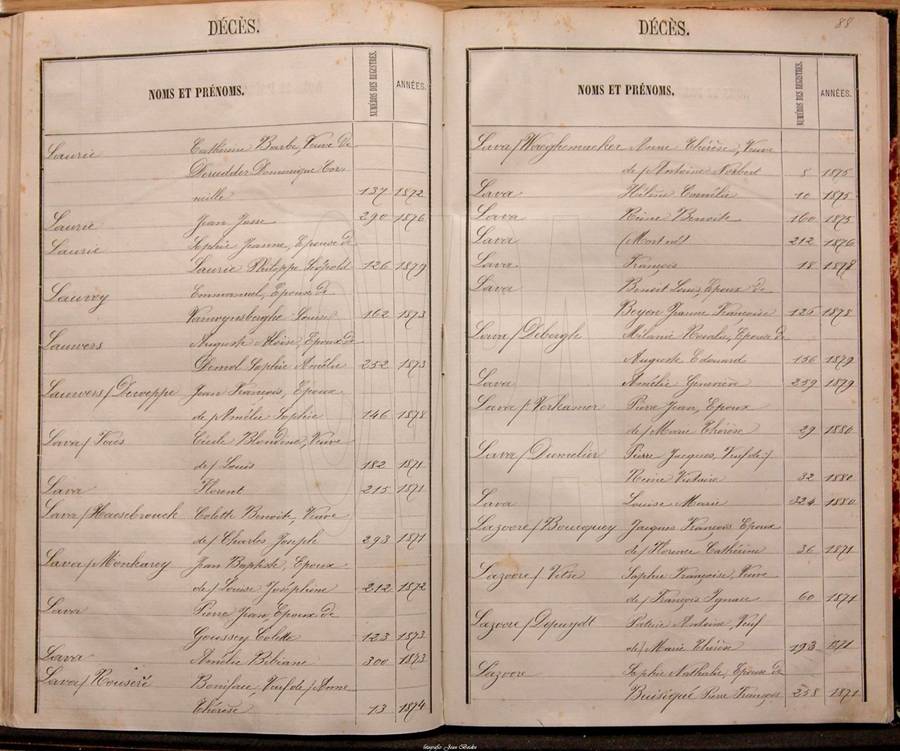 DÉCÈS.
NOMS ET PRÉNOMS. NUMÉROS DES REGISTRES. ANNÉES.
Laurie Catherine Barbe, Veuve de
Deredder Dominique Cor-
neille 137 1872
Laurie Jean Josse 290 1876
Laurie Sophie Jeanne, Epouse de
Laurie Philippe Léopold 126 1879
Lauvoy Emmanuel, Epoux de
Vanwynsberghe Louise 162 1873
Lauwers Auguste Aloïse, Epoux de
Demol Sophie Amélie 252 1873
Lauwers / Deweppe Jean François, Epoux
de / Amélie Sophie 146 1878
Lava / Joos Cécile Blondine, Veuve
de / Louis 182 1871
Lava Florent 215 1871
Lava / Haesebrouck Colette Benoîte, Veuve
de / Charles Joseph 293 1871
Lava / Monkarey Jean Baptiste, Epoux
de / Louise Joséphine 212 1872
Lava Pierre Jean, Epoux de
Goussey Colette 123 1873
Lava Amélie Bibiane 300 1873
Lava / Rouseré Boniface, Veuf de / Anne
Thérèse 13 1874
88
DÉCÈS.
NOMS ET PRÉNOMS. NUMÉROS DES REGISTRES. ANNÉES.
Lava / Waeghemacker Anne Thérèse, Veuve
de / Antoine Norbert 8 1875
Lava Hélène Cornélie 10 1875
Lava Reine Benoîte 160 1875
Lava (Mort né) 212 1876
Lava François 18 1878
Lava Benoit Louis, Epoux de
Beyon Jeanne Françoise 125 1878
Lava / Debergh Mélanie Rosalie, Epouse de
Auguste Edouard 156 1879
Lava Amélie Geneviève 259 1879
Lava / Verhamer Pierre Jean, Epoux
de / Marie Thérèse 29 1880
Lava / Dumelier Pierre Jacques, Veuf de /
Reine Victoire 32 1880
Lava Louise Marie 324 1880
Lazoore / Boucquey Jacques François Epoux
de / Florence Cathérine 36 1871
Lazoore / Sophie Françoise, Veuve
de / François Ignace 60 1871
Lazoore / Depuydt Antoine, Veuf
de / Marie Thérèse 193 1871
Lazoore Sophie Nathalie, Epouse de
Buisiqué Pierre François 258 1871